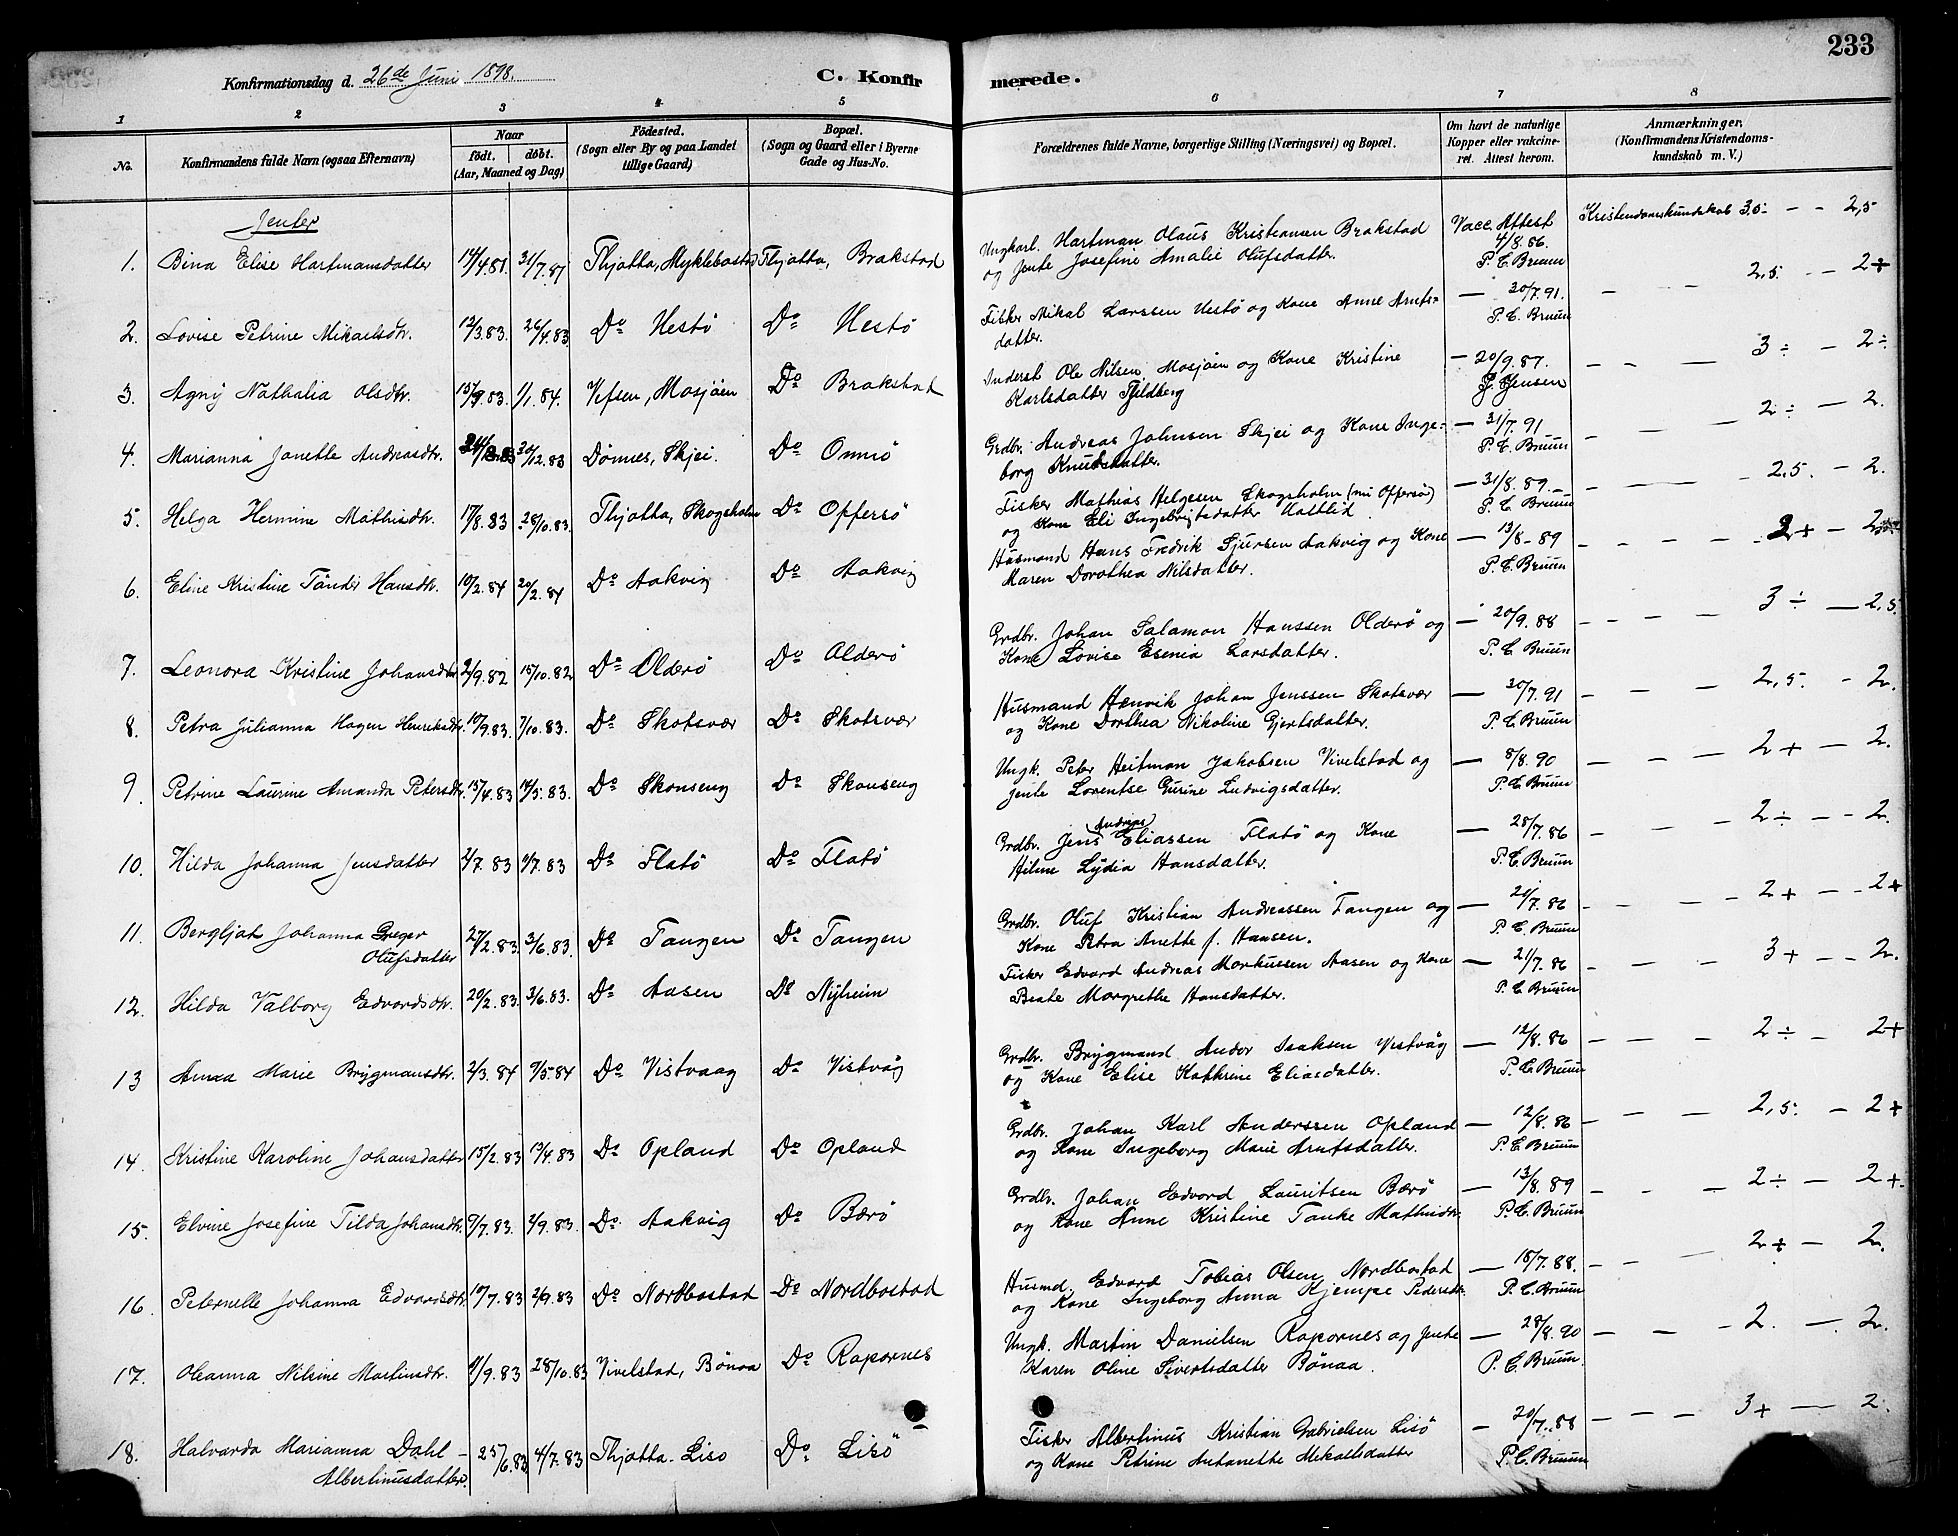 233
Konfirmationsdag d. 26de Juni 1898.
C. Konfirmerede.
1 2 3 4 5 6 7 8
No.
Konfirmandens fulde Navn (ogsaa Efternavn)
Naar
født. døbt.
(Aar, Maaned og Dag)
Fødested.
(Sogn eller By og paa Landet tillige Gaard)
Bopæl.
(Sogn og Gaard eller i Byerne Gade og Hus-No.
Forældrenes fulde Navne, borgerlige Stilling (Næringsvei) og Bopæl.
Om havt de naturlige Kopper eller vakcineret. Attest herom.
Anmærkninger,
(Konfirmandens Kristendomskundskab m. V.)
Jenter
1. Bina Elise Hartmansdatter 14/4.81. 31/7.81 Thjøtta, Myklebostad Thjøtta, Brakstad Ungkarl. Hartman Olaus Kristiansen Brakstad Vacc. Attest 4/8.86. Kristendomskundskab 3,5 - - 2,5
og Jente Josefine Amalie Olufsdatter. P. C. Bruun
2. Lovise Petrine Mikaelsdtr. 12/3.83. 26/4.83 Do Hestø Do Hestø Fisker Mikal Larssen Hestø og Kone Anne Arnts- — 30/7.91. 2,5. — 2÷
datter. P. C. Bruun
3. Agny Nathalia Olsdtr. 15/9.83. 1/1.84. Vefsen, Mosjøen Do Brakstad Inderst Ole Nilsen Mosjøen og Kone Kristine — 20/9.87. 3 ÷ — 2÷
Karlsdatter Fjeldberg J. Jensen
4. Marianna Janette Andreasdtr. 30/12.83 Dønnes, Skjei. Do Omnø Grdbr. Andreas Johnsen Skjei og Kone Inge- — 31/7.91 2 ÷ — 2.
borg Knutsdatter. P. C. Bruun
5. Helga Hermine Mathisdtr. 17/8.83 28/10.83. Thjøtta, Skogsholm Do Offersø Fisker Mathias Helgesen Skogsholm (nu Offersø) — 31/8.89. 2,5. — 2.
og Kone Eli Ingebrigtsdatter Hatlid P. C. Bruun
6. Eline Kristine Tønder Hansdtr. 10/2.84 20/2.84 Do Aakvig Do Aakvig Husmand Hans Fredrik Sjursen Aakvig og Kone — 13/8-89 2+ — 2
Maren Dorothea Nilsdatter. P. C. Bruun
7. Leonora Kristine Johansdtr 2/9.82 15/10.82 Do Olderø Do Olderø Grdbr. Johan Salamon Hanssen Olderø og — 20/9.88 3 ÷ — 2,5.
Kone Lovise Esenia Larsdatter. P. C. Bruun
8. Petra Julianna Hagen Henriksdtr. 10/9.83. 7/10.83. Do Skotsvær Do Skotsvær Husmand Henrik Johan Jenssen Skotsvær — 30/7.91 2,5. - 2.
og Kone Dorthea Nikoline Gjertsdatter. P. C. Bruun
9. Petrine Laurine Amanda Petersdtr. 15/4.83 14/5.83. Do Skonseng Do Skonseng Ungk. Peter Heitman Jakobsen Vivelstad og — 8/8.90 2 + — 2.
Jente Lorentse Gurine Ludvigsdatter. P. C. Bruun
10. Hilda Johanna Jensdatter 2/7.83 Do Flatø Do Flatø Grdbr. Jens Andreas Eliassen Flatø og Kone — 28/7.86 2 ÷ — 2.
Hiline Lydia Hansdatter. P. C. Bruun
11. Bergljat Johanna Greger Olufsdatter 27/2.83. 3/6.83. Do Tangen Do Tangen Grdbr. Oluf Kristian Andreassen Tangen og — 21/7.86 2 + — 2+
Kone Petra Anette f. Hansen. P. C. Bruun
12. Hilda Valborg Edvardsdtr. 20/2.83. 3/6.83. Do Aasen Do Nyheim Fisker Edvard Andreas Markussen Aasen og Kone — 21/7.86 3 + — 2.
Beate Margrethe Hansdatter. P. C. Bruun
13 Anna Marie Brygmansdtr. 2/3.84 Do Vistvaag Do Vistvåg Grdbr. Brygmand Andor Isaksen Vistvåg — 12/8.86 2 ÷ — 2+
og Kone Elise Kathrine Eliasdatter. P. C. Bruun
14. Kristine Karoline Johansdatter 15/2.83 17/4.83 Do Opland Do Opland Grdbr. Johan Karl Anderssen Opland — 12/8.86 — 2,5. — 2+
og Kone Ingeborg Marie Arntsdatter. P. C. Bruun
15. Elvine Josefine Tilda Johansdtr. 9/7.83. 2/9.83. Do Aakvig Do Bærø Grdbr. Johan Edvard Lauritsen Bærø — 13/8.89 2 ÷ — 2+
og Kone Anne Kristine Tanke Mathisdtr. P. C. Bruun
16. Peternelle Johanna Edvardsdtr. 17/7.83 2/9.83 Do Nordbostad Do Nordbostad Husmd. Edvard Tobias Olsen Nordbostad — 18/7.88. 2 ÷ — 2.
og Kone Ingeborg Anna Kjempe Pedersdtr. P. C. Bruun
17. Oleanna Nilsine Martinsdtr. 9/9.83 28/10.83 Vivelstad, Bønaa Do Rapornes Ungk. Martin Danielsen Rapornes og Jente — 28/8.90 2. — 2.
Karen Oline Sivertsdatter Bønaa. P. C. Bruun.
18. Halvarda Marianna Dahl - Albertinusdatter. 25/6.83 4/7.83 Thjøtta. Lisø Do Lisø Fisker Albertinus Kristian Gabrielsen Lisø — 20/7.88 3 + — 2.
og Kone Petrine Antonette Mekallsdatter P. C. Bruun